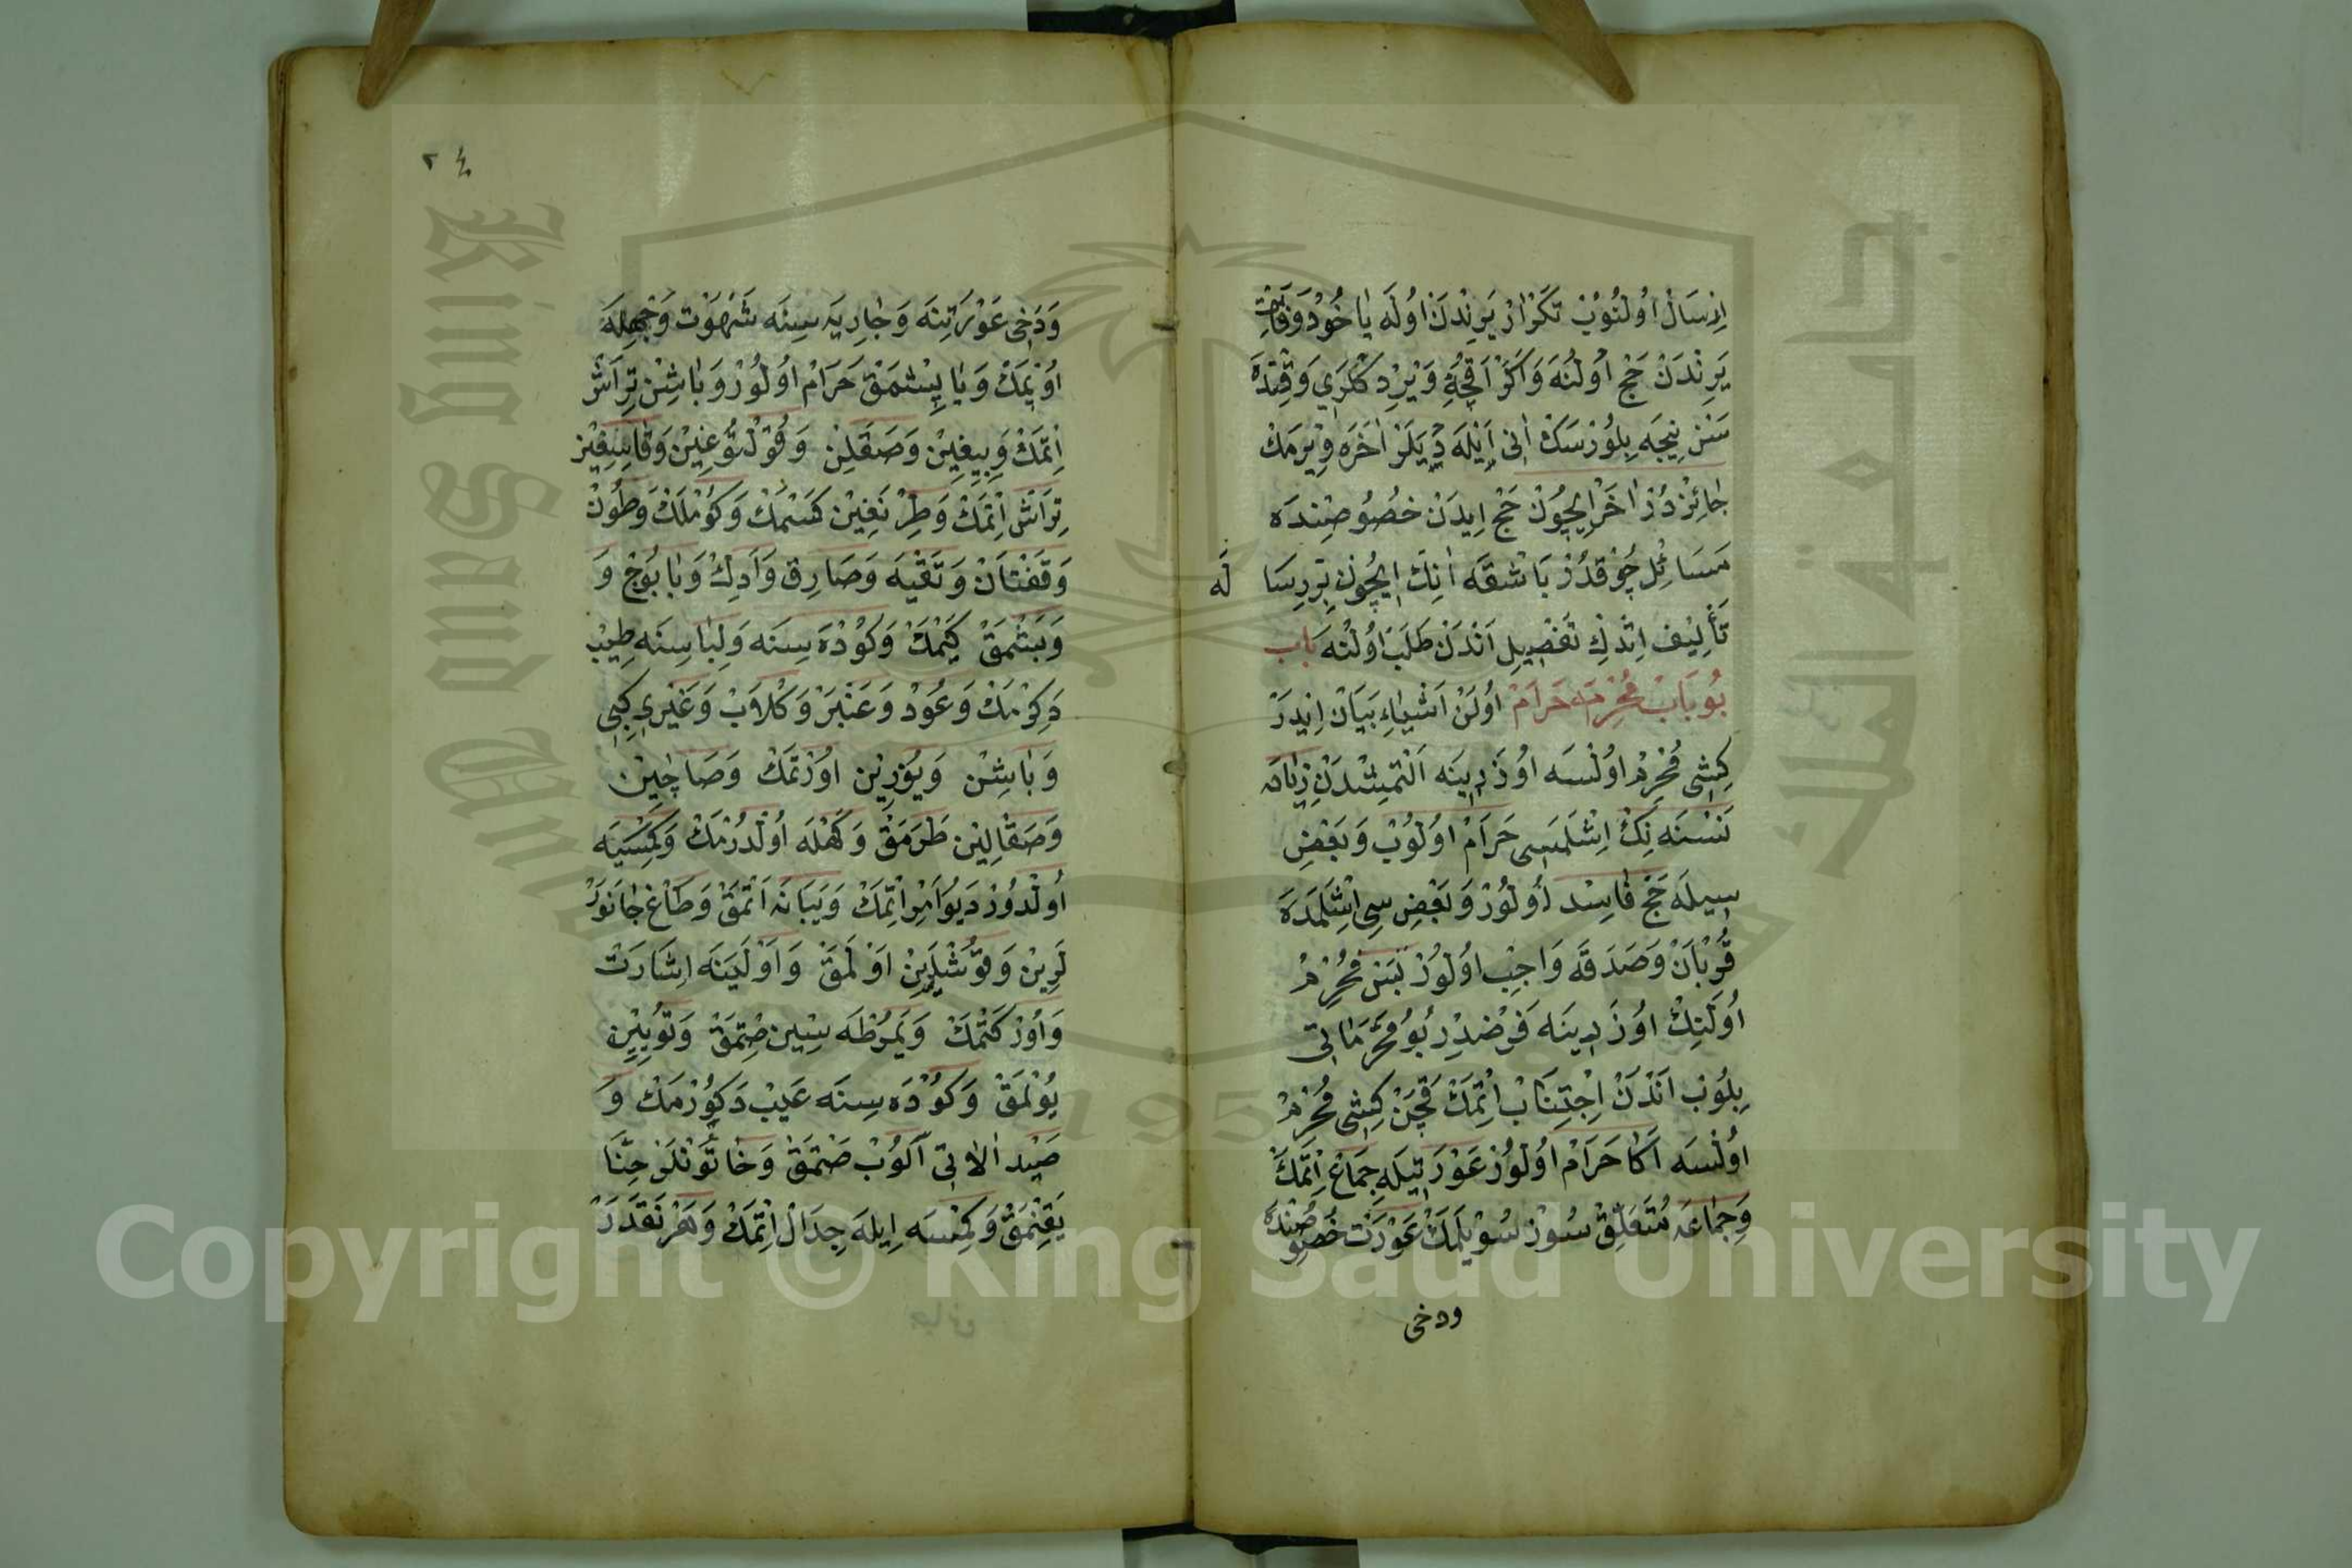 اِرْسَالْ اُولُنُوبْ تَكْرَارْ يَرِنْدَنْ اُولَه يَا خُودْ وَفَاتِ
يَرِنْدَنْ حَجْ اُولُنَه وَاَكَرْ اَقْچَهِ وَيْرِدِكْلَرِي وَقْتِنْدَه
سَنْ نِيجَه بِلُورْسَكْ اَنِي اَيْلَه دِيَلَرْ اٰخَرَه وِيْرمَكْ
جَائِزْدُرْ اٰخَرْ اِيچُونْ حَجْ اِيدَنْ خُصُوصِنْدَه
مَسَائِلْ چُوقْدُرْ بَاشْقَه اَنِكْ اِيچُونْ بِرْ رِسَا لَه
تَأْلِيفْ اِتْدِكْ تَفْصِيلِ اَنْدَنْ طَلَبْ اُولُنَه بَاب
بُو بَابْ مُحْرِمَه حَرَامْ اُولَنْ اَشْيَاءِ بَيَانْ اِيدَرْ
كِشِي مُحْرِمْ اُولْسَه اُوزَرِينَه اَلْتْمِشْدَنْ زِيَادَه
نَسْنَه نِكْ اِشْلَمَسِي حَرَامْ اُولُوبْ وَبَعْضِ
سِيلَه حَجْ فَاسِد اُولُورْ وَبَعْضِ سِي اِشْلَمَدَه
قُرْبَانْ وَصَدَقَه وَاجِبْ اُولُورْ بَسْ مُحْرِمْ
اُولَنِكْ اُوزَرِينَه فَرْضْدِرْ بُو مُحَرَّمَاتِي
بِلُوبْ اَنْدَنْ اِجْتِنَابْ اِتْمَكْ قَچَنْ كِشِي مُحْرِمْ
اُولْسَه اَكَا حَرَامْ اُولُورْ عَوْرَتِيلَه جِمَاعْ اِتْمَكْ
وَجِمَاعَه مُتَعَلِّقْ سُوزْ سُوْيلَمَكْ عَوْرَتْ خُصُوصِنْدَه
ودخى
٢٤
وَدَخِي عَوْرَتِنَه وَجَارِيَه سِنَه شَهْوَتْ وَجْهِلَه
اُوپْمَكْ وَيَا يَاپِشْمَقْ حَرَامْ اُولُورْ وَبَاشِنْ تِرَاشْ
اِتْمَكْ وَبِيغِيْن وَصَقَلِنْ وَقُولْتُوغِيْن وَقَاسِيغِيْن
تِرَاشْ اِتْمَكْ وَطِرْنَغِيْن كَسْمَكْ وَكُومْلَكْ وَطُونْ
وَقَفْتَانْ وَتَقْيَه وَصَارِقْ وَاَدِكْ وَبَابُوجْ وَ
وَبَشْمَقْ كِيْمَكْ وَكُودَه سِنَه وَلِبَاسِنَه طِيبْ
دَكُورْمَكْ وَعُودْ وَعَنْبَرْ وَكُلَابْ وَغَيْرِي كِبِي
وَبَاشِنْ وَيُوزِيْن اُورْتْمَكْ وَصَاچِيْن
وَصَقَالِيْن طَرَمَقْ وَكَهْلَه اُولْدُرْمَكْ وَكِمْسَيَه
اُولْدُورْ دَيُو اَمِرْ اِتْمَكْ وَيَبَانَه اَتْمَقْ وَطَاغْ جَانَوَرْ
لَرِيْن وَقُوشْلَرِيْن اَوْلَمَقْ وَاَوْلَيَنَه اِشَارَتْ
وَاُوزْ كَتْمَكْ وَيَمُرْطَه سِيْن صِتْمَقْ وَتُويِيْن
يُولْمَقْ وَكُودَه سِنَه عَيْب دَكُورْمَكْ وَ
صَيْد اٰلاتِي اَلُوبْ صَتْمَقْ وَخَاتُونْلَرْ حِنَّا
يَقِنْمَقْ وَكِمْسَه اِيلَه جِدَالْ اِتْمَكْ وَهَرْ نَقَدَرْ